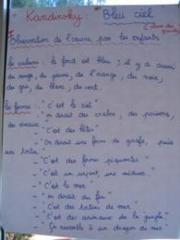 Kandinsky : "Bleu ciel"
Observation de l'œuvre par les enfants
les couleurs : le fond est bleu ; il y a aussi
du rouge, du jaune, de l'orange, du rose,
du gris, du blanc, du vert.
les formes : "C'est le ciel"
- "on dirait des crabes, des poissons,
- "C'est des bêtes"
- "On dirait une forme de girafe, puis
- "C'est des formes piquantes"
- "C'est un serpent, une
- "C'est la mer"
- "on dirait du
- "C'est des tortues de mer"
- "C'est des animaux de la jungle"
- "Ça ressemble à un dragon de mer"